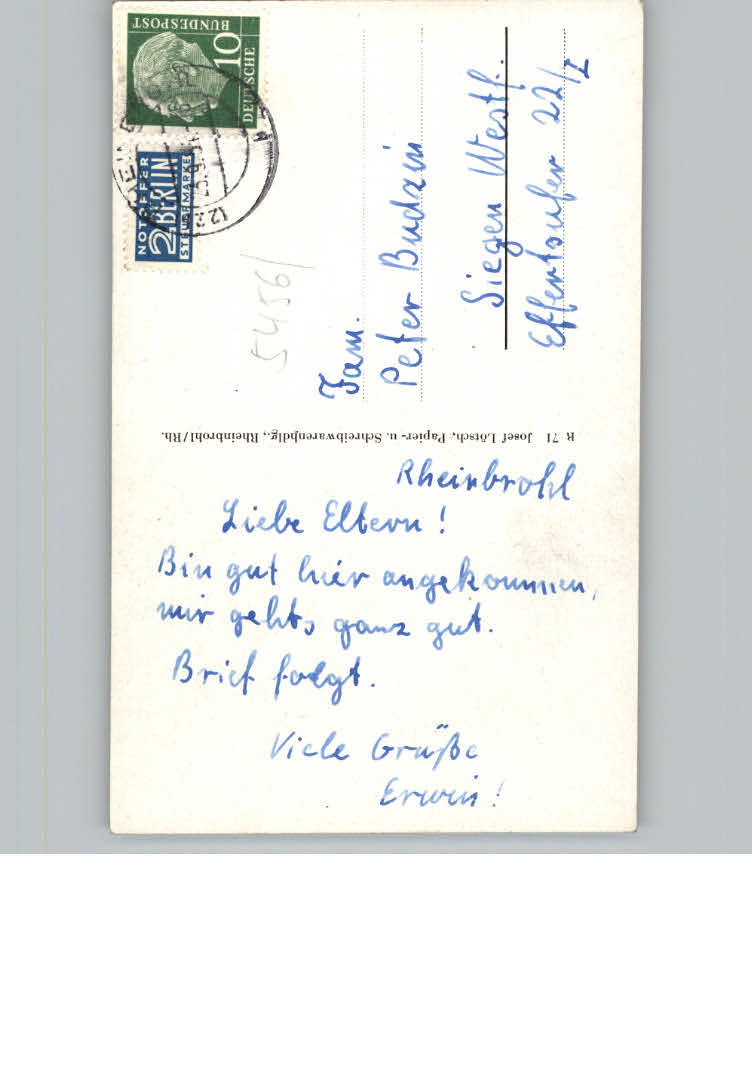 Rheinbrohl
Liebe Eltern!
Bin gut hier angekommen,
mir gehts ganz gut.
Brief folgt.
Viele Grüße
Erwin!
R 71 Josef Lötsch, Papier- u. Schreibwarenhdlg., Rheinbrohl/Rh.
Fam.
Peter Budzin
Siegen Westf.
Effertsufer 22/I
5456/
DEUTSCHE
BUNDESPOST
10
NOTOPFER
2 BERLIN
STEUERMARKE